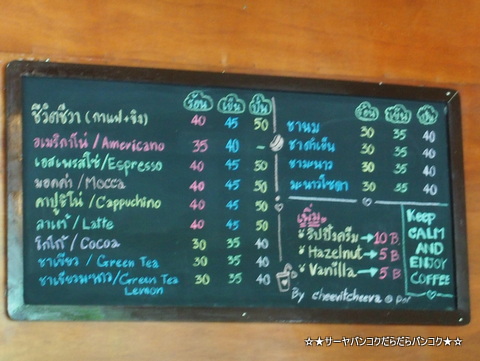 ร้อน เย็น ปั่น
ชีวิตชีวา (กาแฟ+ขิง) 40 45 50
อเมริกาโน่ /Americano 35 40 -
เอสเพรสโซ่/Espresso 40 45 50
มอคค่า /Mocca 40 45 50
คาปูชิโน่ /Cappuchino 40 45 50
ลาเต้ /Latte 40 45 50
โกโก้ /Cocoa 30 35 40
ชาเขียว / Green Tea 30 35 40
ชาเขียวมะนาว/Green Tea Lemon 30 35 40
ร้อน เย็น ปั่น
ชานม 30 35 40
ชาดำเย็น 30 35 40
ชามะนาว 30 35 40
มะนาวโซดา 30 35 40
เพิ่ม
วิปปิ้งครีม → 10 B
Hazelnut → 5 B
Vanilla → 5 B
By cheevitcheeva @ pai
Keep
CALM
AND
ENJOY
COFFEE
☆★サーヤバンコクだらだらバンコク★☆